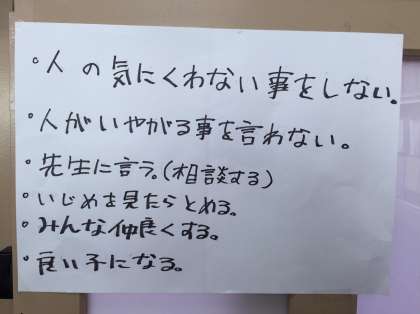 °人の気にくわない事をしない。
・人がいやがる事を言わない。
・先生に言う。(相談する)
・いじめを見たらとめる。
・みんな仲良くする。
・良い子になる。